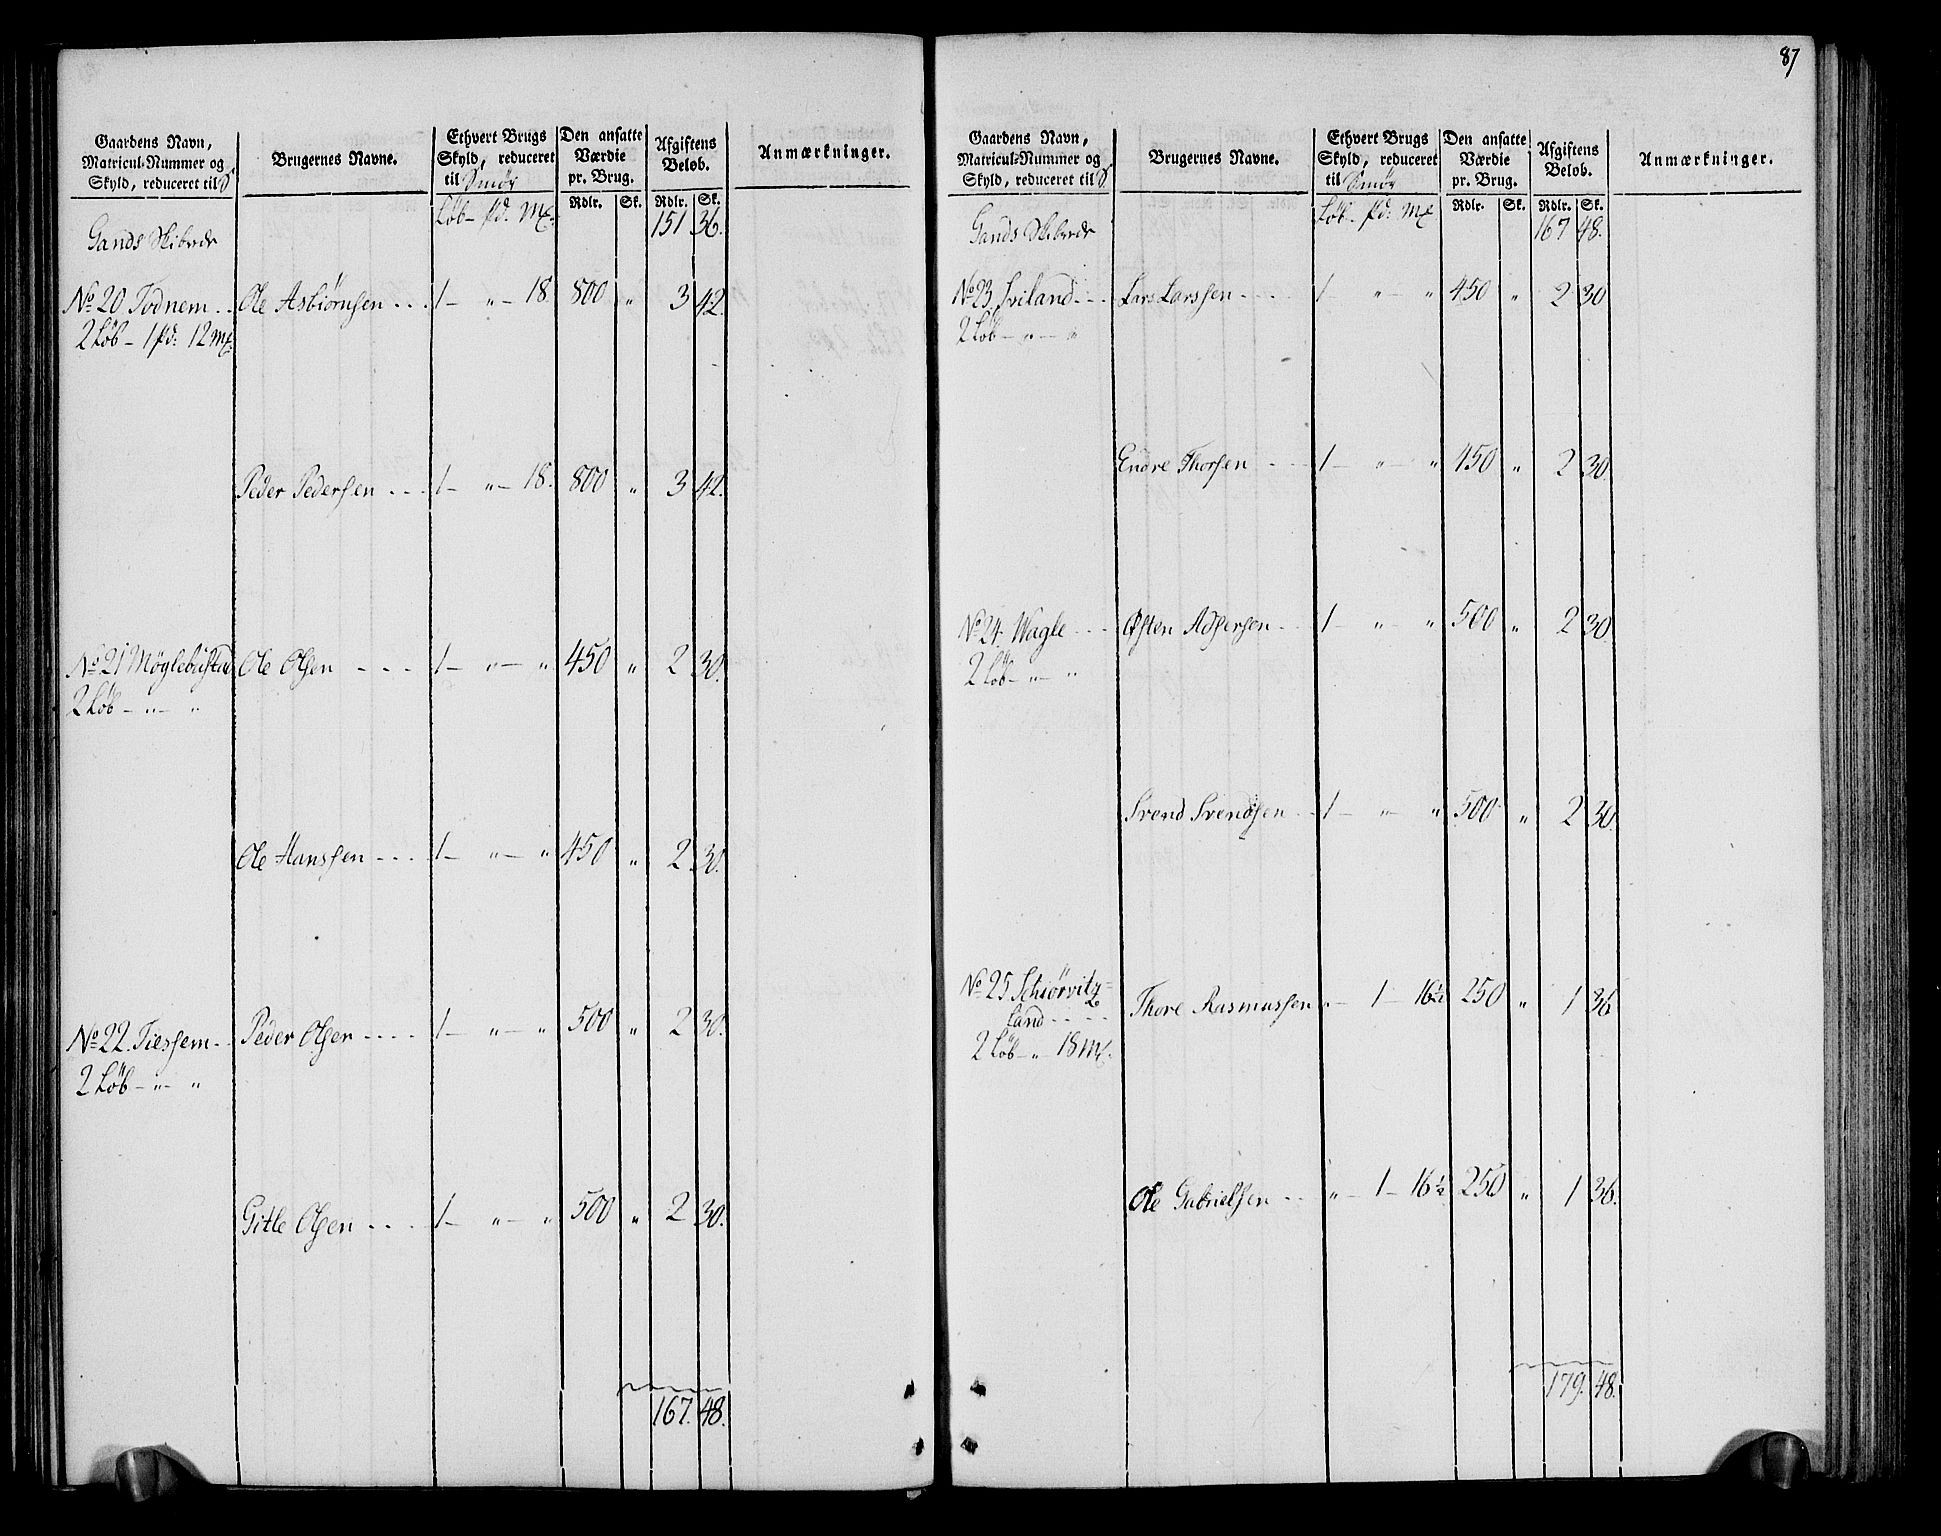 87
Gaardens Navn, Matricul-Nummer og Skyld, reduceret til S. | Brugernes Navne. | Ethvert Brugs Skyld, reduceret til Smör | Den ansatte Værdie pr. Brug. | Afgiftens Beløb. | Anmærkninger.
Rdlr. | Sk. | Rdlr. | Sk.
Gands Skibrede | Löb - pd: Mk | 151 | 36.
No 20 Todnem . . | Ole Asbiörnsen . . . | 1 - " - 18. | 800 | " | 3 | 42.
2 Löb - 1 pd: 12 Mk.
Peder Pedersen . . . | 1 - " - 18. | 800 | " | 3 | 42.
No 21 Möglebustad | Ole Olsen - - - - | 1 - " - " | 450 | " | 2 | 30.
2 Löb - " - "
Ole Hanssen - - - | 1 - " - " | 450 | " | 2 | 30.
No 22. Tiessem - - | Peder Olsen - - - - | 1 - " - " | 500 | " | 2 | 30.
2 Löb - " - "
Gitle Olsen . . . . | 1 - " - " | 500 | " | 2 | 30.
167. | 48.
Gaardens Navn, Matricul-Nummer og Skyld, reduceret til S. | Brugernes Navne. | Ethvert Brugs Skyld, reduceret til Smör | Den ansatte Værdie pr. Brug. | Afgiftens Beløb. | Anmærkninger.
Rdlr. | Sk. | Rdlr. | Sk.
Gands Skibrede | Löb - pd: Mk | 167 | 48.
No 23 Sviland - - - | Lars Larssen - - - - | 1 - " - " | 450 | " | 2 | 30
2 Löb - " - "
Endre Thorsen - - - | 1 - " - " | 450 | " | 2 | 30.
No 24. Wagle - - - | Østen Adsersen - - | 1 - " - " | 500 | " | 2 | 30.
2 Löb - " - "
Svend Svendsen - - | 1 - " - " | 500 | " | 2 | 30.
No 25 Schiörvitz=
land - - - - | Thore Rasmussen | " - 1 - 16½ | 250 | " | 1 | 36
2 Löb - " 18 Mk.
Ole Gabrielsen - - | " - 1 - 16½ | 250 | " | 1 | 36.
179. | 48.